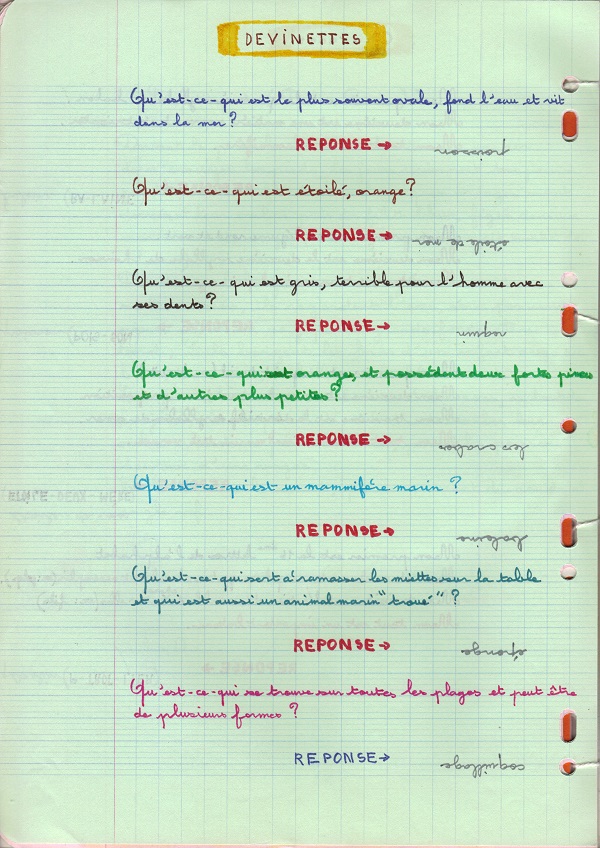 DEVINETTES
Qu'est-ce-qui est le plus souvent ovale, fend l'eau et vit
dans la mer?
REPONSE → poisson
Qu'est-ce-qui est étoilé, orange?
REPONSE → étoile de mer
Qu'est-ce- qui est gris, terrible pour l'homme avec
ses dents?
REPONSE → requin
Qu'est-ce-qui sont oranges, et possèdent deux fortes pinces
et d'autres plus petites?
REPONSE → les crabes
Qu'est-ce-qui est un mammifére marin ?
REPONSE → baleine
Qu'est-ce-qui sert à ramasser les miettes sur la table
et qui est aussi un animal marin "troué" ?
REPONSE → éponge
Qu'est-ce-qui se trouve sur toutes les plages et peut être
de plusieurs formes ?
REPONSE → coquillage